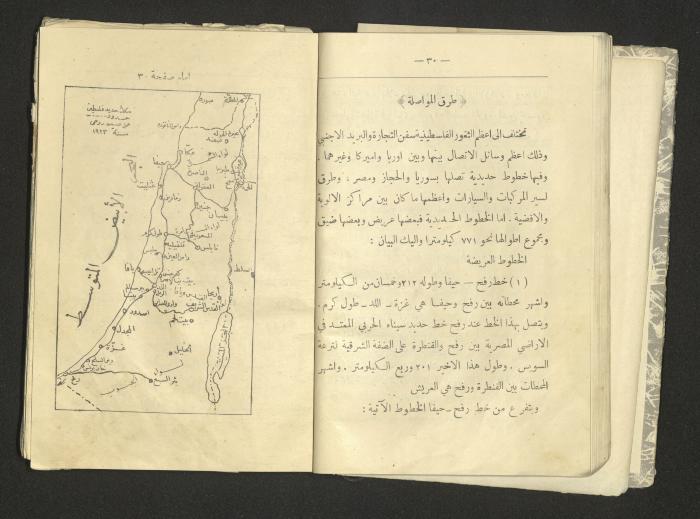 — ٣٠ —
﴿ طرق المواصلة ﴾
تختلف الى اعظم الثغور الفلسطينية سفن التجارة والبريد الاجنبي
وذلك اعظم وسائل الاتصال بينها وبين اوربا واميركا وغيرهما .
وفيها خطوط حديدية تصلها بسوريا والحجاز ومصر ، وطرق
لسير المركبات والسيارات واعظمها ما كان بين مراكز الالوية
والاقضية . اما الخطوط الحديدية فبعضها عريض وبعضها ضيق
ومجموع اطوالها نحو ٧٧١ كيلومترا واليك البيان :
الخطوط العريضة
( ١ ) خط رفح — حيفا وطوله ٢١٢ وخمسان من الكيلومتر
واشهر محطاته بين رفح وحيفا هي غزة — اللد — طول كرم .
ويتصل بهذا الخط عند رفح خط حديد سيناء الحربي الممتد في
الاراضي المصرية بين رفح والقنطرة على الضفة الشرقية لترعة
السويس . وطول هذا الاخير ٢٠١ وربع الكيلومتر . واشهر
المحطات بين القنطرة ورفح هي العريش
ويتفرع من خط رفح — حيفا الخطوط الآتية :
امام صفحة ٣٠
سكة حديد فلسطين
سنة ١٩٢٣
صور
صفد
عكا
حيفا
طبريا
الناصرة
عتليت
العفولة
زمارين
بيسان
جنين
طولكرم
نابلس
قلقيلية
راس العين
يافا
السلط
اللد
اريحا
القدس الشريف
بيت لحم
اسدود
المجدل
غزة
الخليل
بئر السبع
رفح
الأبيض المتوسط